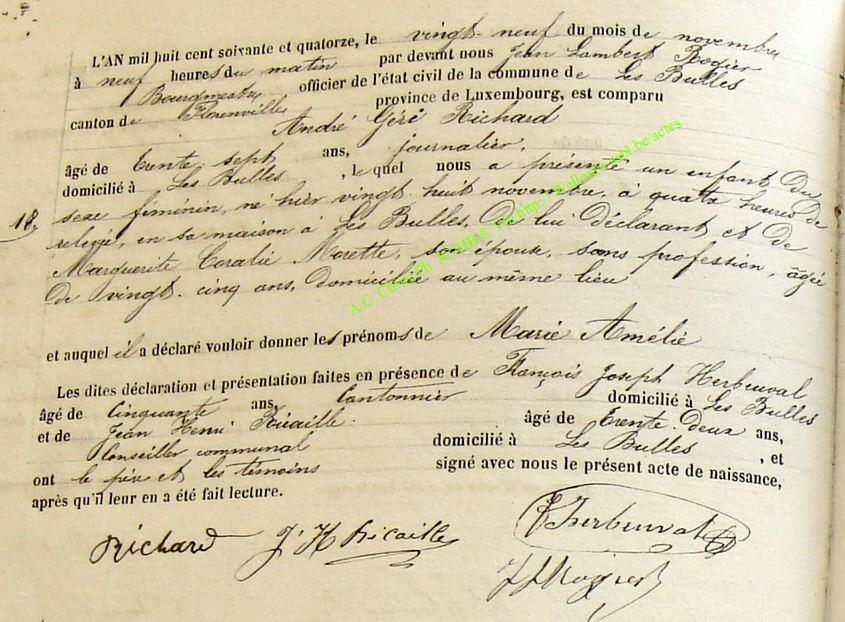 L'AN mil huit cent soixante et quatorze, le vingt-neuf du mois de novembre
à neuf heures du matin par devant nous Jean Lambert Rogier
Bourgmestre officier de l'état civil de la commune de Les Bulles
canton de Florenville province de Luxembourg, est comparu
André Géré Richard
âgé de trente-sept ans, journalier,
domicilié à Les Bulles, lequel nous a présenté un enfant du
18.
sexe féminin, né hier vingt-huit novembre, à quatre heures de
relevée, en sa maison à Les Bulles, de lui déclarant et de
Marguerite Coralie Morette, son épouse, sans profession, âgée
de vingt-cinq ans, domiciliée au même lieu
et auquel il a déclaré vouloir donner les prénoms de Marie Amélie
Les dites déclaration et présentation faites en présence de François Joseph Herbeuval
âgé de Cinquante ans, Cantonnier domicilié à Les Bulles
et de Jean Henri Ricaille âgé de trente-deux ans,
Conseiller communal domicilié à Les Bulles, et
ont le père et les témoins signé avec nous le présent acte de naissance,
après qu'il leur en a été fait lecture.
Richard J H Ricaille Herbeuval
J L Rogier